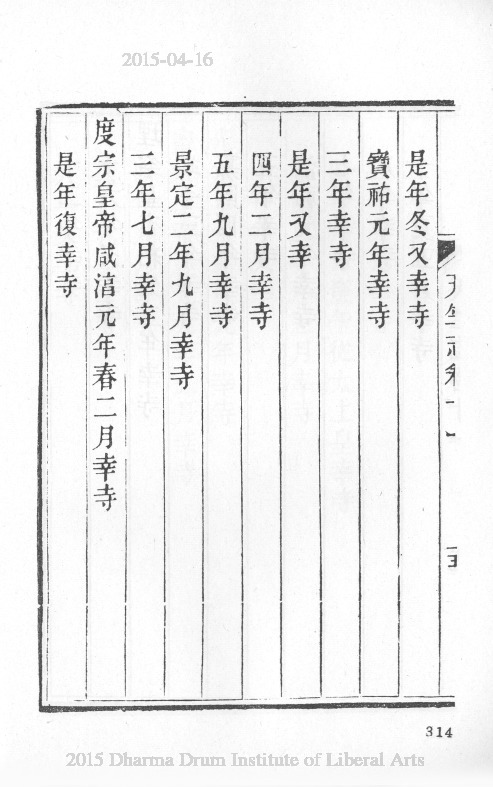 2015-04-16
是年冬又幸寺
寶祐元年幸寺
三年幸寺
是年又幸
四年二月幸寺
五年九月幸寺
景定二年九月幸寺
三年七月幸寺
度宗皇帝咸淳元年春二月幸寺
是年復幸寺
314
2015 Dharma Drum Institute of Liberal Arts